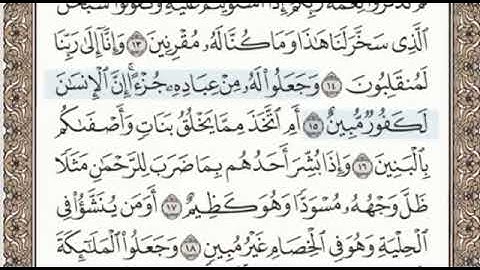 ثُمَّ تَذْكُرُوا۟ نِعْمَةَ رَبِّكُمْ إِذَا ٱسْتَوَيْتُمْ عَلَيْهِ وَتَقُولُوا۟ سُبْحَٰنَ
ٱلَّذِى سَخَّرَ لَنَا هَٰذَا وَمَا كُنَّا لَهُۥ مُقْرِنِينَ ١٣ وَإِنَّآ إِلَىٰ رَبِّنَا
لَمُنقَلِبُونَ ١٤ وَجَعَلُوا۟ لَهُۥ مِنْ عِبَادِهِۦ جُزْءًا ۚ إِنَّ ٱلْإِنسَٰنَ
لَكَفُورٌ مُّبِينٌ ١٥ أَمِ ٱتَّخَذَ مِمَّا يَخْلُقُ بَنَاتٍ وَأَصْفَىٰكُم
بِٱلْبَنِينَ ١٦ وَإِذَا بُشِّرَ أَحَدُهُم بِمَا ضَرَبَ لِلرَّحْمَٰنِ مَثَلًا
ظَلَّ وَجْهُهُۥ مُسْوَدًّا وَهُوَ كَظِيمٌ ١٧ أَوَمَن يُنَشَّؤُا۟ فِى
ٱلْحِلْيَةِ وَهُوَ فِى ٱلْخِصَامِ غَيْرُ مُبِينٍ ١٨ وَجَعَلُوا۟ ٱلْمَلَٰٓئِكَةَ